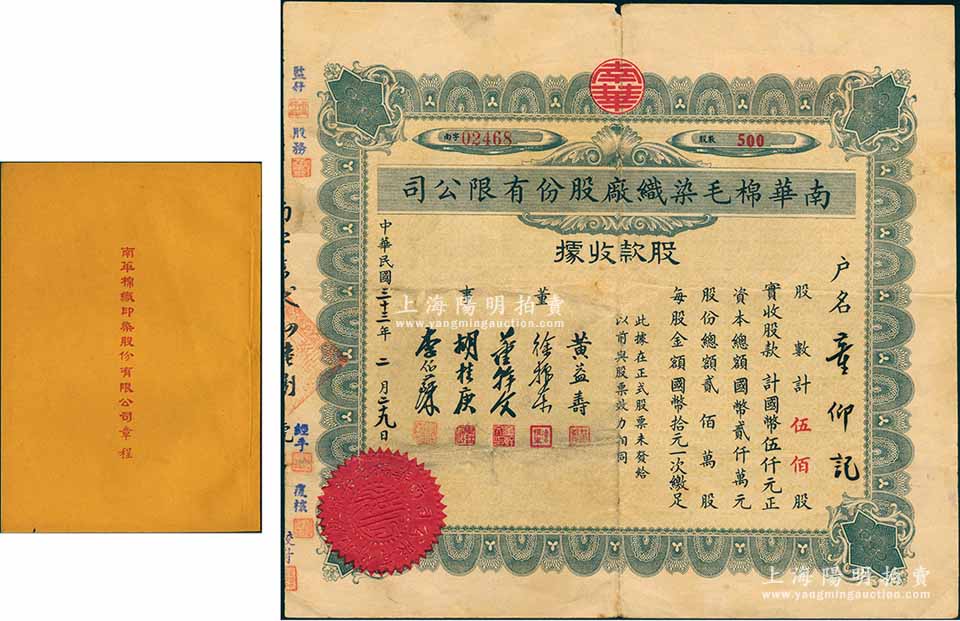 南華棉織印染股份有限公司章程
南華
南字 02468
股數 500
南華棉毛染織廠股份有限公司
股款收據
户名 童仰記
股數計伍佰股
實收股款計國幣伍仟元正
資本總額國幣貳仟萬元
股份總額貳佰萬股
每股金額國幣拾元一次繳足
此據在正式股票未發給
以前與股票效力相同
董事
黃益壽
胡桂庚
李伯蓀
中華民國三十三年二月二九日
股務
經手
覆核
上海陽明拍賣
www.yangmingauction.com
上海陽明拍賣
www.yangmingauction.com